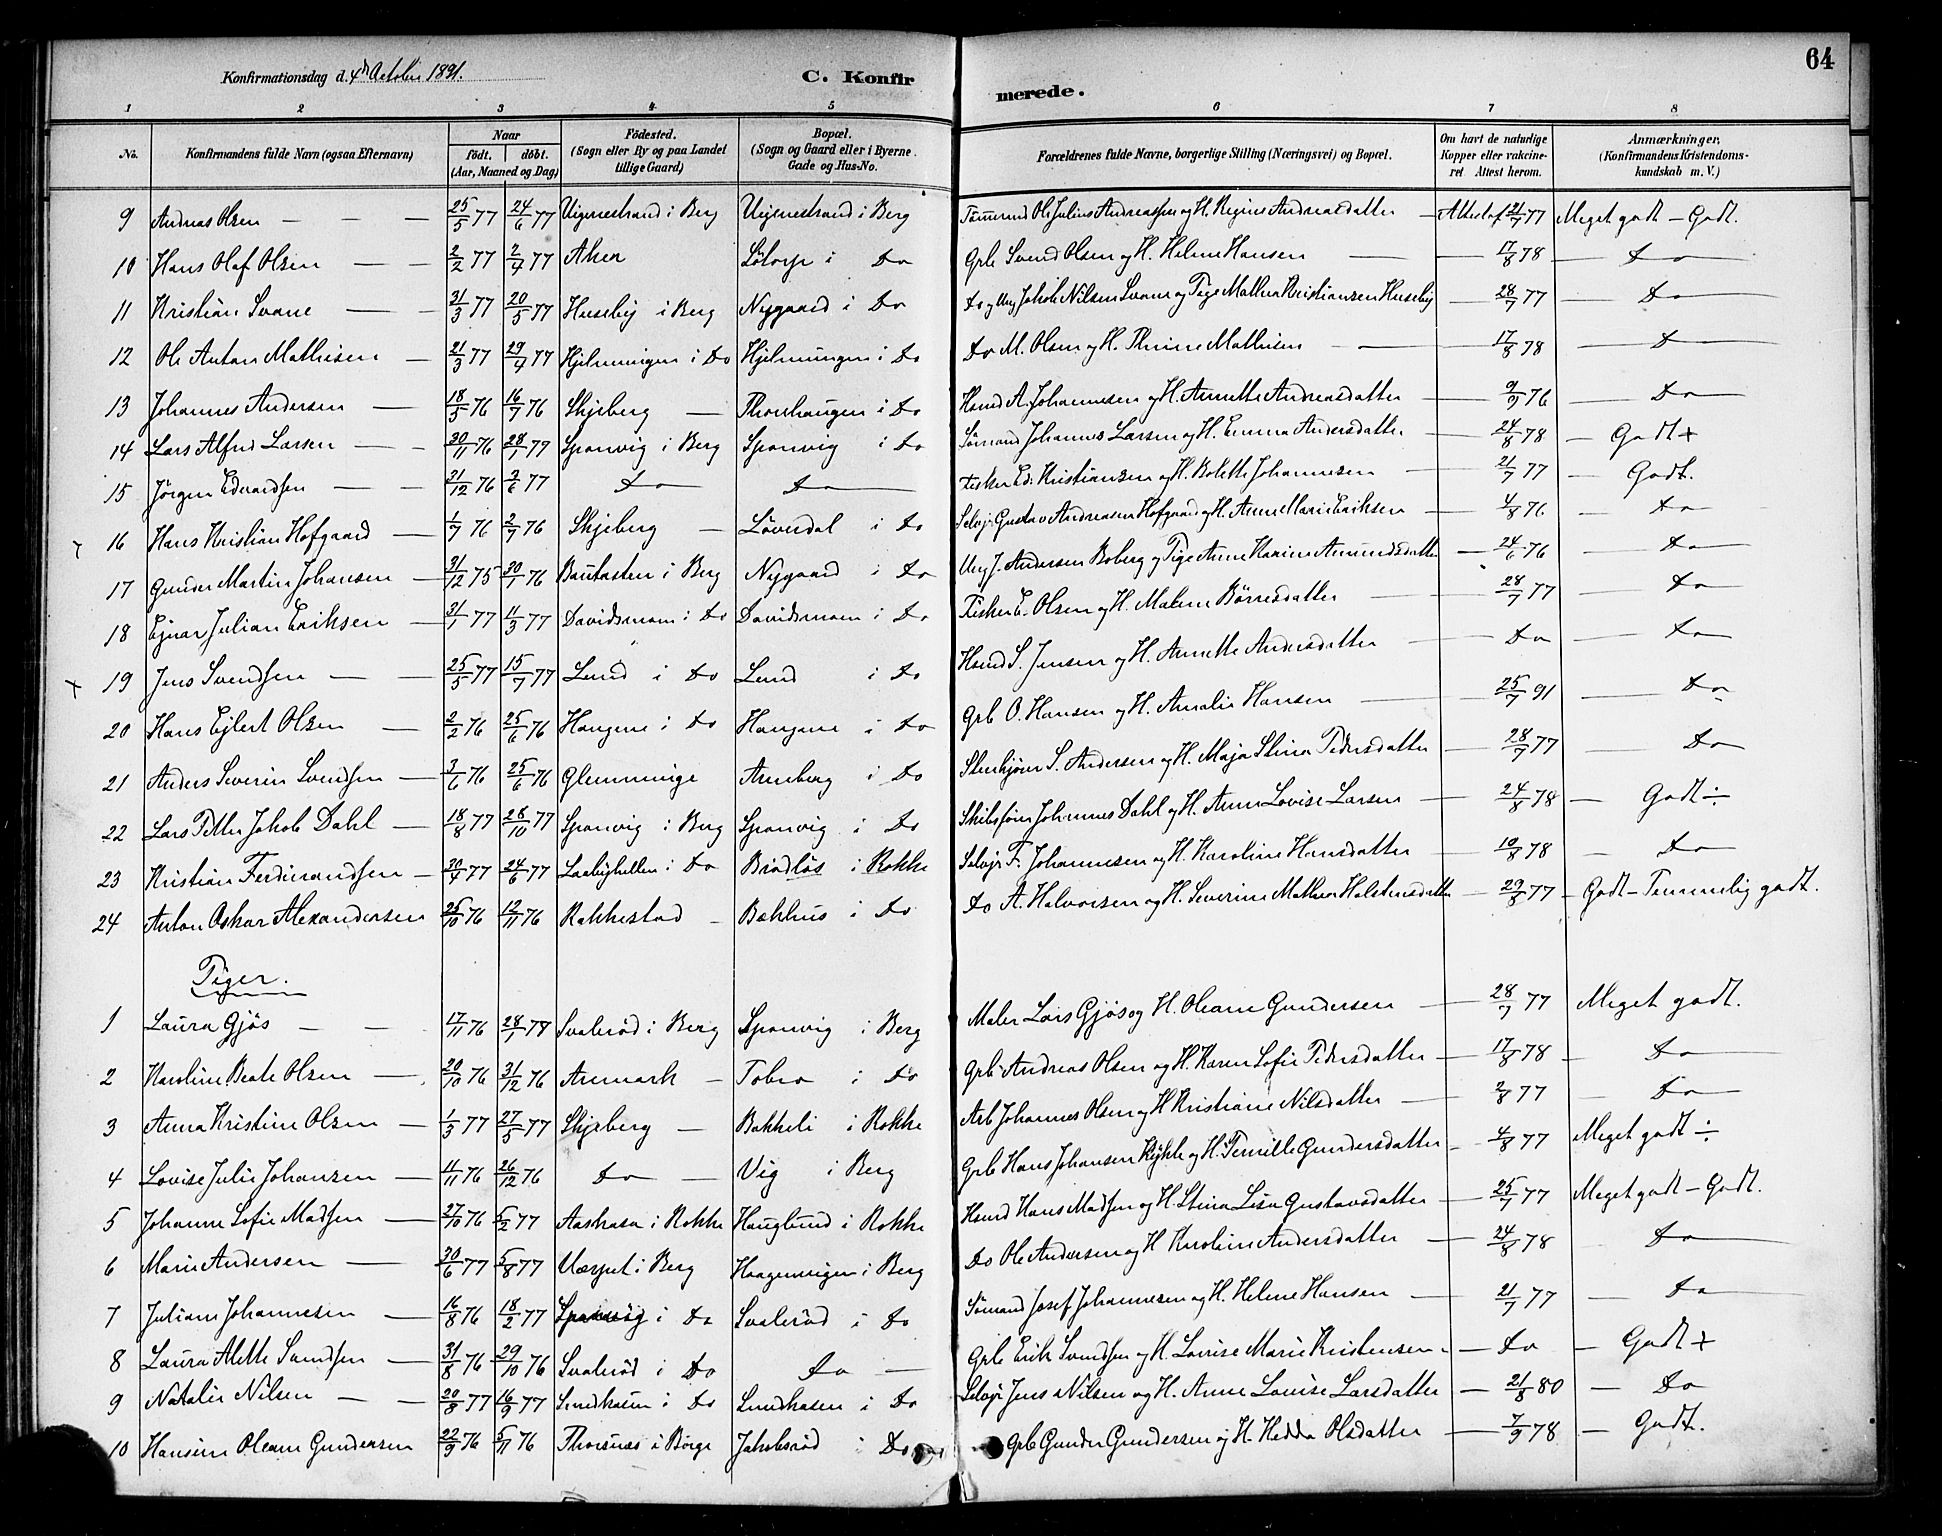 Konfirmationsdag d. 4de October 1891.
C. Konfir
merede.
64
1 2 3 4 5 6 7 8
No. Konfirmandens fulde Navn (ogsaa Efternavn) Naar födt. döbt. (Aar, Maaned og Dag) Födested. (Sogn eller By og paa Landet tillige Gaard) Bopæl. (Sogn og Gaard eller i Byerne Gade og Hus-No. Forældrenes fulde Navne, borgerlige Stilling (Næringsvei) og Bopæl. Om havt de naturlige Kopper eller vakcineret. Attest herom. Anmærkninger, (Konfirmandens Kristendomskundskab m. V.)
9 Andreas Olsen — — — 25/5 77 24/6 77 i Berg i Berg Tömmermd Ole Julius Andreassen og H. Regine Andreasdatter — Attest af 21/7 77 Meget godt – Godt.
10 Hans Olaf Olsen — — 2/2 77 2/4 77 Aker Lötorp i Do Grb Svend Olsen og H. Helene Hansen — 17/8 78 — Do
11 Kristian Svane — — 31/3 77 20/5 77 Huseby i Berg Nygaard i Do Do og Ung Jakob Nilsen Svane og Pige Mathea Kristiansen Huseby — 28/7 77 — Do
12 Ole Anton Mathisen — 21/3 77 29/4 77 Hjelmungen i Do Hjelmungen i Do Do M. Olsen og H. Thrine Mathisen — 17/8 78 — Do
13 Johannes Andersen — 18/5 76 16/7 76 Skjeberg — Thorshaugen i Do Hsmd A. Johannesen og H. Annette Andreasdatter — 9/9 76 — Do
14 Lars Alfred Larsen — 30/11 76 28/1 77 Sponvig i Berg Sponvig i Do Sömand Johannes Larsen og H. Emma Andersdatter — 24/8 78 — Godt +
15 Jörgen Edvardsen — — 31/12 76 3/6 77 Do Do Fisker Ed. Kristiansen og H. Bolette Johannesen — 21/7 77 — Godt.
16 Hans Kristian Hofgaard — 1/7 76 2/7 76 Skjeberg — Lövendal i Do Selvejr Gustav Andreasen Hofgaard og H. Anne Marie Eriksen — 4/8 76 — Do
17 Gunder Martin Johansen — 31/12 75 30/1 76 Bautasten i Berg Nygaard i Do Ung J. Andersen Boberg og Pige Anne Karine Amundsdatter — 24/6 76 — Do
18 Ejnar Julian Eriksen — 31/1 77 11/3 77 Davidsmoen i Do Davidsmoen i Do Fisker E. Olsen og H. Malene Börresdatter — 28/7 77 — Do
19 Jens Svendsen — — 25/5 77 15/7 77 Lund i Do Lund i Do Hsmd S. Jensen og H. Annette Andersdatter — Do — Do
20 Hans Ejlert Olsen — 2/2 76 25/6 76 Haugene i Do Haugene i Do Grb O. Hansen og H. Amalie Hansen — 25/7 91 — Do
21 Anders Severin Svendsen — 3/6 76 25/6 76 Glemminge Anneberg i Do Stenhjörer S. Andersen og H. Maja Stina Pedersdatter — 28/7 77 — Do
22 Lars Petter Jakob Dahl — 18/8 77 28/10 77 Sponvig i Berg Sponvig i Do Skibsförer Johannes Dahl og H. Anne Lovise Larsen — 24/8 78 — Godt ÷
23 Kristian Ferdinandsen — 30/4 77 24/6 77 i Do Brödlös i Rokke Selvejr F. Johannesen og H. Karoline Hansdatter — 10/8 78 — Do
24 Anton Oskar Alexandersen 25/10 76 12/11 76 Rakkestad — Bækhus i Do Do A. Halvorsen og H. Severine Mathea Holstensdatter — 29/8 77 — Godt – Temmelig godt.
Piger.
1 Laura Gjös — — 17/11 76 28/1 78 Svalerød i Berg Sponvig i Berg Maler Lars Gjös og H. Oleane Gundersen — 28/7 77 Meget godt.
2 Karoline Beate Olsen — 20/10 76 31/12 76 Aremark — Tobro i Do Grb Andreas Olsen og H. Karen Sofie Pedersdatter — 17/8 78 — Do
3 Anna Kristine Olsen — 1/3 77 27/5 77 Skjeberg — Bakkeli i Rokke Arb Johannes Olsen og H Kristiane Nilsdatter — 2/8 77 — Do
4 Lovise Julie Johansen — 11/11 76 26/12 76 Do — Vig i Berg Grb Hans Johansen Kykle og H. Pernille Gundersdatter — 4/8 77 Meget godt ÷
5 Johanne Sofie Madsen — 27/10 76 5/2 77 Aashasa i Rokke Hauglund i Rokke Hsmd Hans Madsen og H. Stina Lisa Gustavsdatter — 25/7 77 Meget godt – Godt.
6 Marie Andersen — 30/6 77 5/8 77 i Berg i Berg Do Ole Andersen og H Karoline Andersdatter — 24/8 78 — Do
7 Juliane Johannesen — 16/8 76 18/2 77 Sponvig i Do Svalerød i Do Sömand Josef Johannesen og H. Helene Hansen — 21/7 77 — Do
8 Laura Alette Svendsen — 31/8 76 29/10 76 Svalerød i Do Do — Grb Erik Svendsen og H. Lovise Marie Kristensen — Do — Godt +
9 Natalie Nilsen — 20/8 77 16/9 77 Lundkasen i Do Lundkasen i Do Selvejr Jens Nilsen og H. Anne Lovise Larsdatter — 21/8 80 — Do
10 Hansine Oleane Gundersen 22/9 76 5/11 76 Thorsnæs i Borge Jakobsrød i Do Grb Gunder Gundersen og H. Hedda Olsdatter — 7/9 78 — Godt.